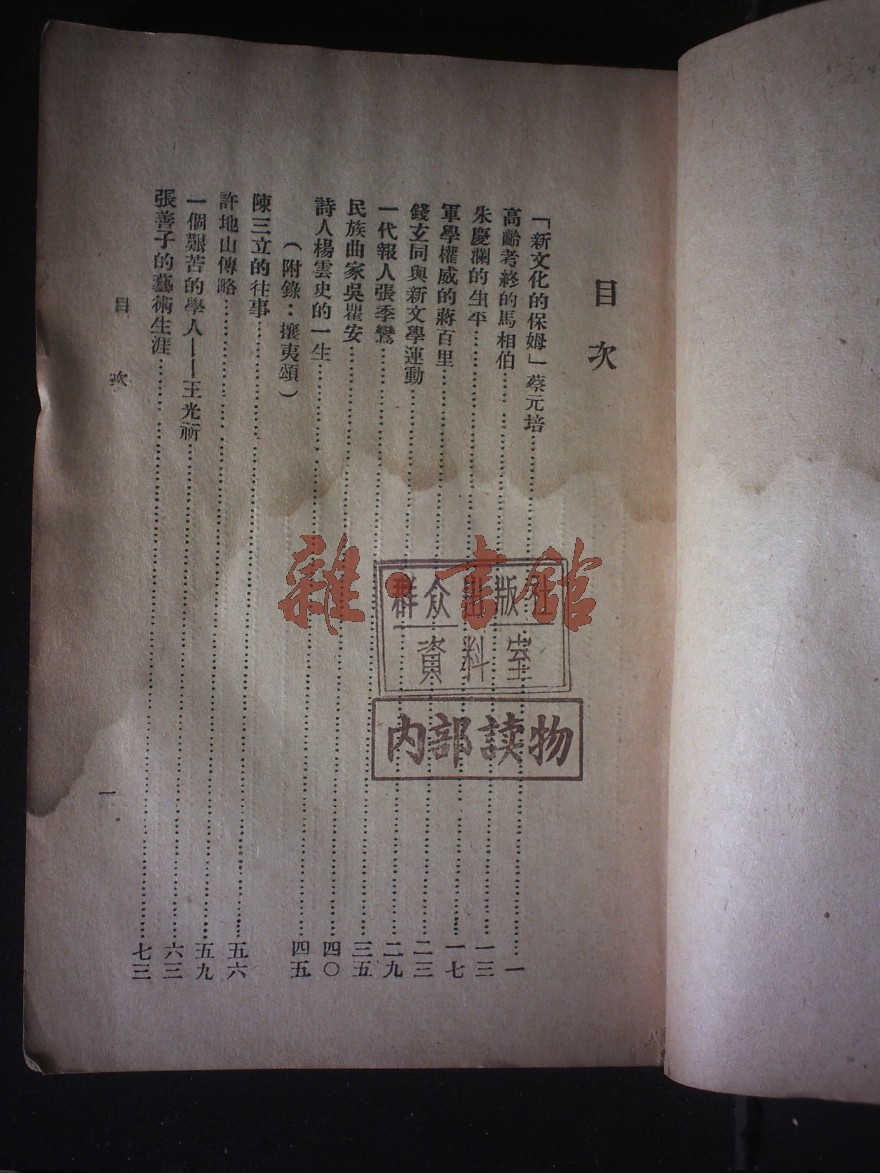 目次
「新文化的保姆」蔡元培……一
高齡考終的馬相伯……一三
朱慶瀾的生平……一七
軍學權威的蔣百里……二三
錢玄同與新文學運動……二九
一代報人張季鸞……三五
民族曲家吳瞿安……四〇
詩人楊雲史的一生……四五
（附錄：攘夷頌）
陳三立的往事……五六
許地山傳略……五九
一個艱苦的學人——王光祈……六三
張善子的藝術生涯……七三
目次
一
群众出版社
資料室
内部读物
雜·書館